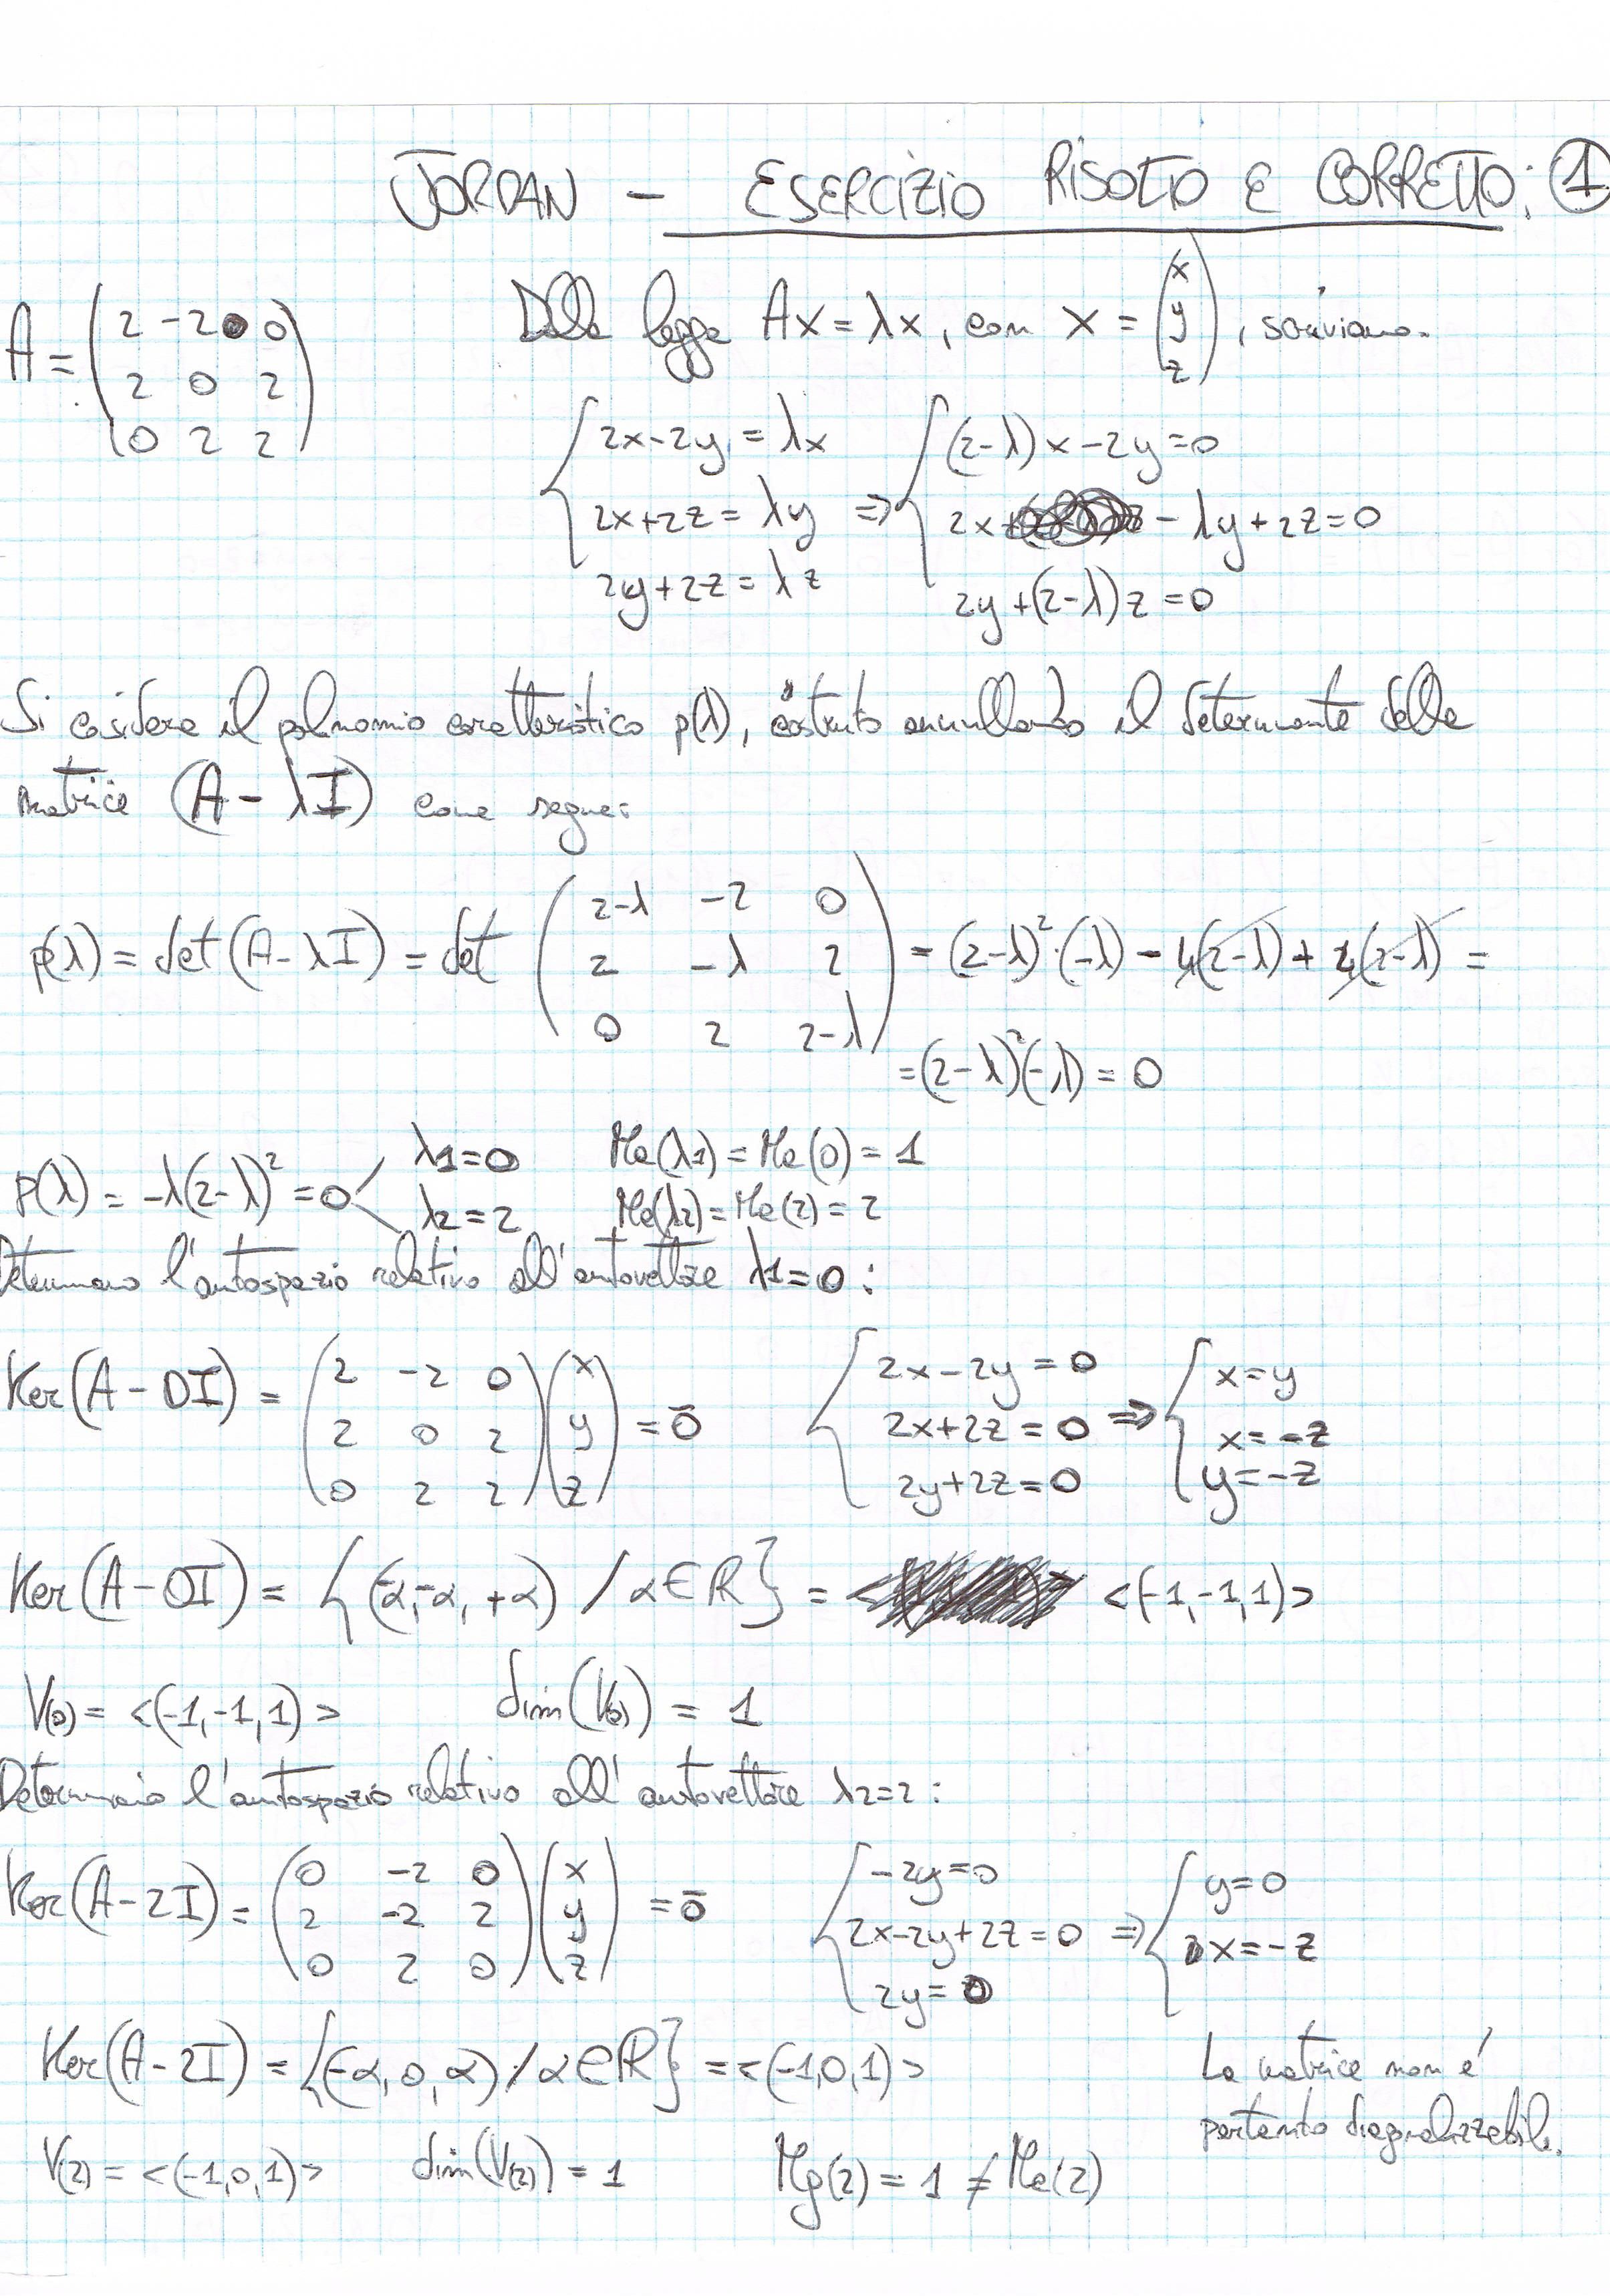 JORDAN - ESERCIZIO RISOLTO E CORRETTO: 1
A = (2 -2 0; 2 0 2; 0 2 2)
Dalla legge Ax = λx, con x = (x y z), scriviamo.
{2x-2y = λx ⇒ {(2-λ)x-2y=0
2x+2z = λy 2x - λy+2z=0
2y+2z = λz 2y+(2-λ)z=0
Si cosidera il polinomio caratteristico p(λ), costruito annullando il determinante della
matrice (A - λI) come segue:
p(λ) = det(A-λI) = det (2-λ -2 0; 2 -λ 2; 0 2 2-λ) = (2-λ)²·(-λ) - 4(2-λ) + 4(2-λ) =
= (2-λ)²(-λ) = 0
p(λ) = -λ(2-λ)² = 0 λ1=0 Ma(λ1) = Ma(0) = 1
λ2=2 Ma(λ2) = Ma(2) = 2
Determino l'autospazio relativo all'autovettore λ1=0:
Ker(A-0I) = (2 -2 0; 2 0 2; 0 2 2)(x y z) = 0̄ {2x-2y=0 2x+2z=0 2y+2z=0 ⇒ {x=y x=-z y=-z
Ker(A-0I) = {(-α,-α,+α) / α∈R} = <(-1,-1,1)>
V(0) = <(-1,-1,1)> dim(V(0)) = 1
Determinaio l'autospazio relativo all'autovettore λ2=2:
Ker(A-2I) = (0 -2 0; 2 -2 2; 0 2 0)(x y z) = 0̄ {-2y=0 2x-2y+2z=0 2y=0 ⇒ {y=0 x=-z
Ker(A-2I) = {(-α,0,α) / α∈R} = <(-1,0,1)>
V(2) = <(-1,0,1)> dim(V(2)) = 1 Mg(2) = 1 ≠ Ma(2)
La matrice non é
pertanto diagonalizzabile.